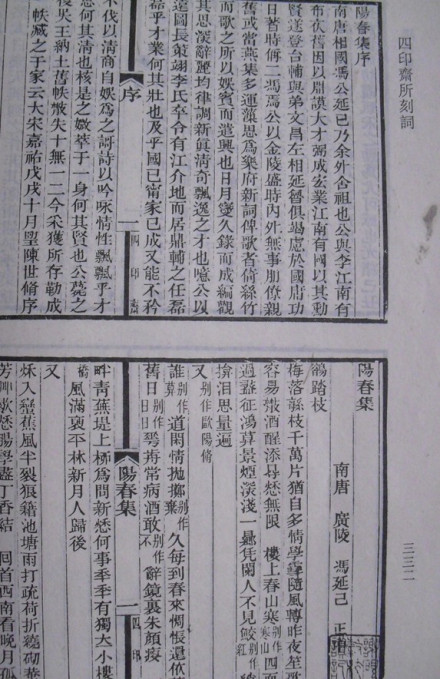 四印齋所刻詞
陽春集序
南唐相國馮公延巳乃余外舍祖也公與李江南有
布衣舊因以淵謨大才弼成宏業江南有國以其勳
賢遂登台輔與弟文昌左相延魯俱竭慮於國庸功
日著時稱二馮焉公以金陵盛時內外無事朋僚親
舊或當燕集多運藻思為樂府新詞俾歌者倚絲竹
而歌之所以娛賓而遣興也日月寖久錄而成編觀
其思深辭麗均律調新真清奇飄逸之才也噫公以
遠圖長策翊李氏卒令有江介地而居鼎輔之任磊
磊乎才業何其壯也及乎國已甯家已成又能不矜
序 一 四印齋
不伐以清商自娛為之謌詩以吟咏情性飄飄乎才
思何其清也核是之媺萃于一身何其賢也公薨之
後吳王納土舊帙散失十無一二今采獲所存勒成
一帙藏之于家云大宋嘉祐戊戌十月望陳世脩序
三三二
陽春集
南唐 廣陵 馮延己 正中
鵲踏枝
梅落繁枝千萬片猶自多情學雪隨風轉昨夜笙歌
容易散酒醒添得愁無限 樓上春山寒別作寒山四面
過盡征鴻暮景煙深淺一晌凭闌人不見鮫別作紅綃
揜淚思量遍
又別作歐陽脩
誰別作莫道閒情拋擲別作棄久每到春來惆悵還依
舊日別作日日花前常病酒敢別作不辭鏡裏朱顏瘦
陽春集 一 四印
畔青蕪堤上柳為問新愁何事年年有獨立小樓
橋風滿袖平林新月人歸後
又
秋入蠻蕉風半裂狼籍池塘雨打疏荷折遶砌蛩
芳草愁腸學盡丁香結 回首西南看晚月孤